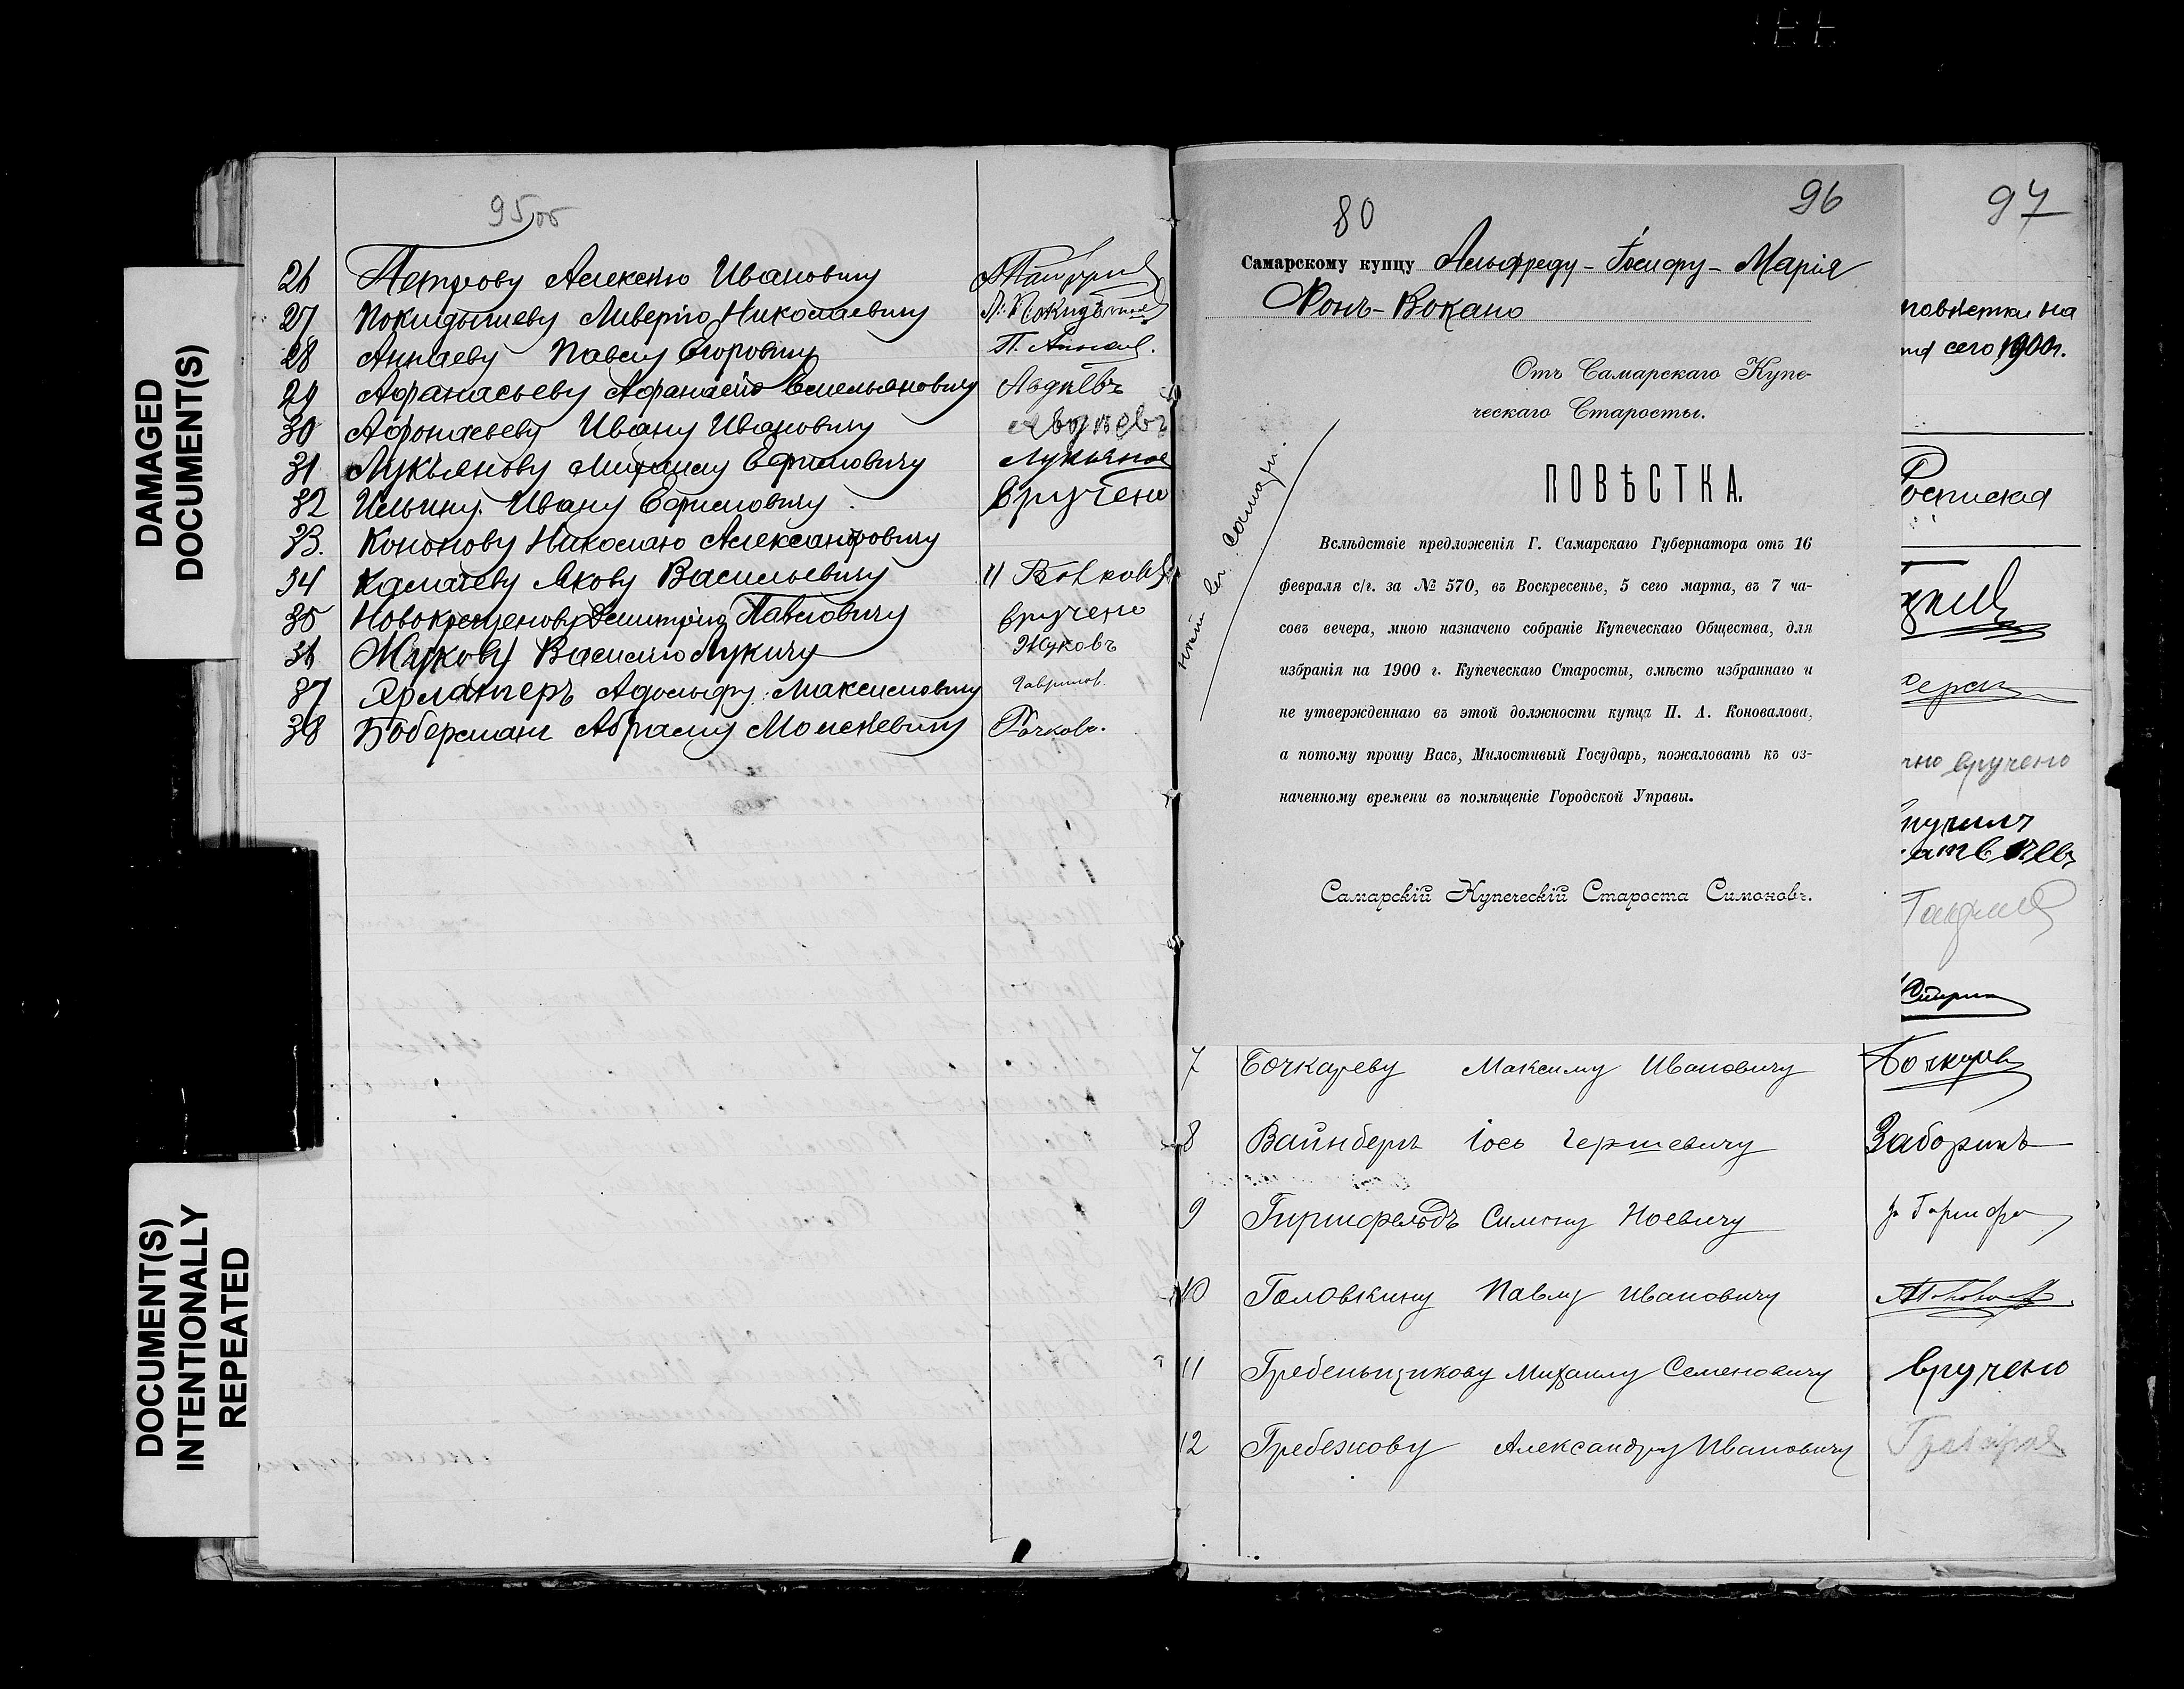 DAMAGED
DOCUMENT(S)
DOCUMENT(S)
INTENTIONALLY
REPEATED
95 об
26 Петрову Алексѣю Ивановичу
27 Покидышеву Ливерію Николаевичу
28 Аннаеву Павлу Егоровичу П. Аннаев.
29 Афанасьеву Афанасію Емельяновичу Авдѣевъ
30 Афонасьеву Ивану Ивановичу Авдѣевъ
31 Лукьянову Михаилу Ефимовичу Лукьянов
32 Ильину Ивану Ефимовичу вручено
33. Кононову Николаю Александровичу
34 Каматеву Якову Васильевичу
35 Новокрещенову Дмитрію Павловичу вручено
36 Жукову Василію Лукичу Жуковъ
37 Ярлатеръ Адольфу Максимовичу Гаврилов.
38 Боберман Абраму Мошкевичу Рочковъ.
80
96
Самарскому купцу Альфреду-Іосифу-Марія
Фонъ-Вокано
Отъ Самарскаго Купе-
ческаго Старосты.
ПОВѢСТКА.
Вслѣдствіе предложенія Г. Самарскаго Губернатора отъ 16
февраля с/г. за № 570, въ Воскресенье, 5 сего марта, въ 7 ча-
совъ вечера, мною назначено собраніе Купеческаго Общества, для
избранія на 1900 г. Купеческаго Старосты, вмѣсто избраннаго и
не утвержденнаго въ этой должности купца П. А. Коновалова,
а потому прошу Васъ, Милостивый Государь, пожаловать къ оз-
наченному времени въ помѣщеніе Городской Управы.
Самарскій Купеческій Староста Симоновъ.
97
повѣстки на
сего 1900 г.
Росписка
вручено
7 Бочкареву Максиму Ивановичу Бочкарев
8 Вайнберг Іось Гершевичу Заборинъ
9 Гиршфельдъ Симону Ноевичу
10 Головкину Павлу Ивановичу
11 Гребеньщикову Михаилу Семеновичу вручено
12 Гребежову Александру Ивановичу